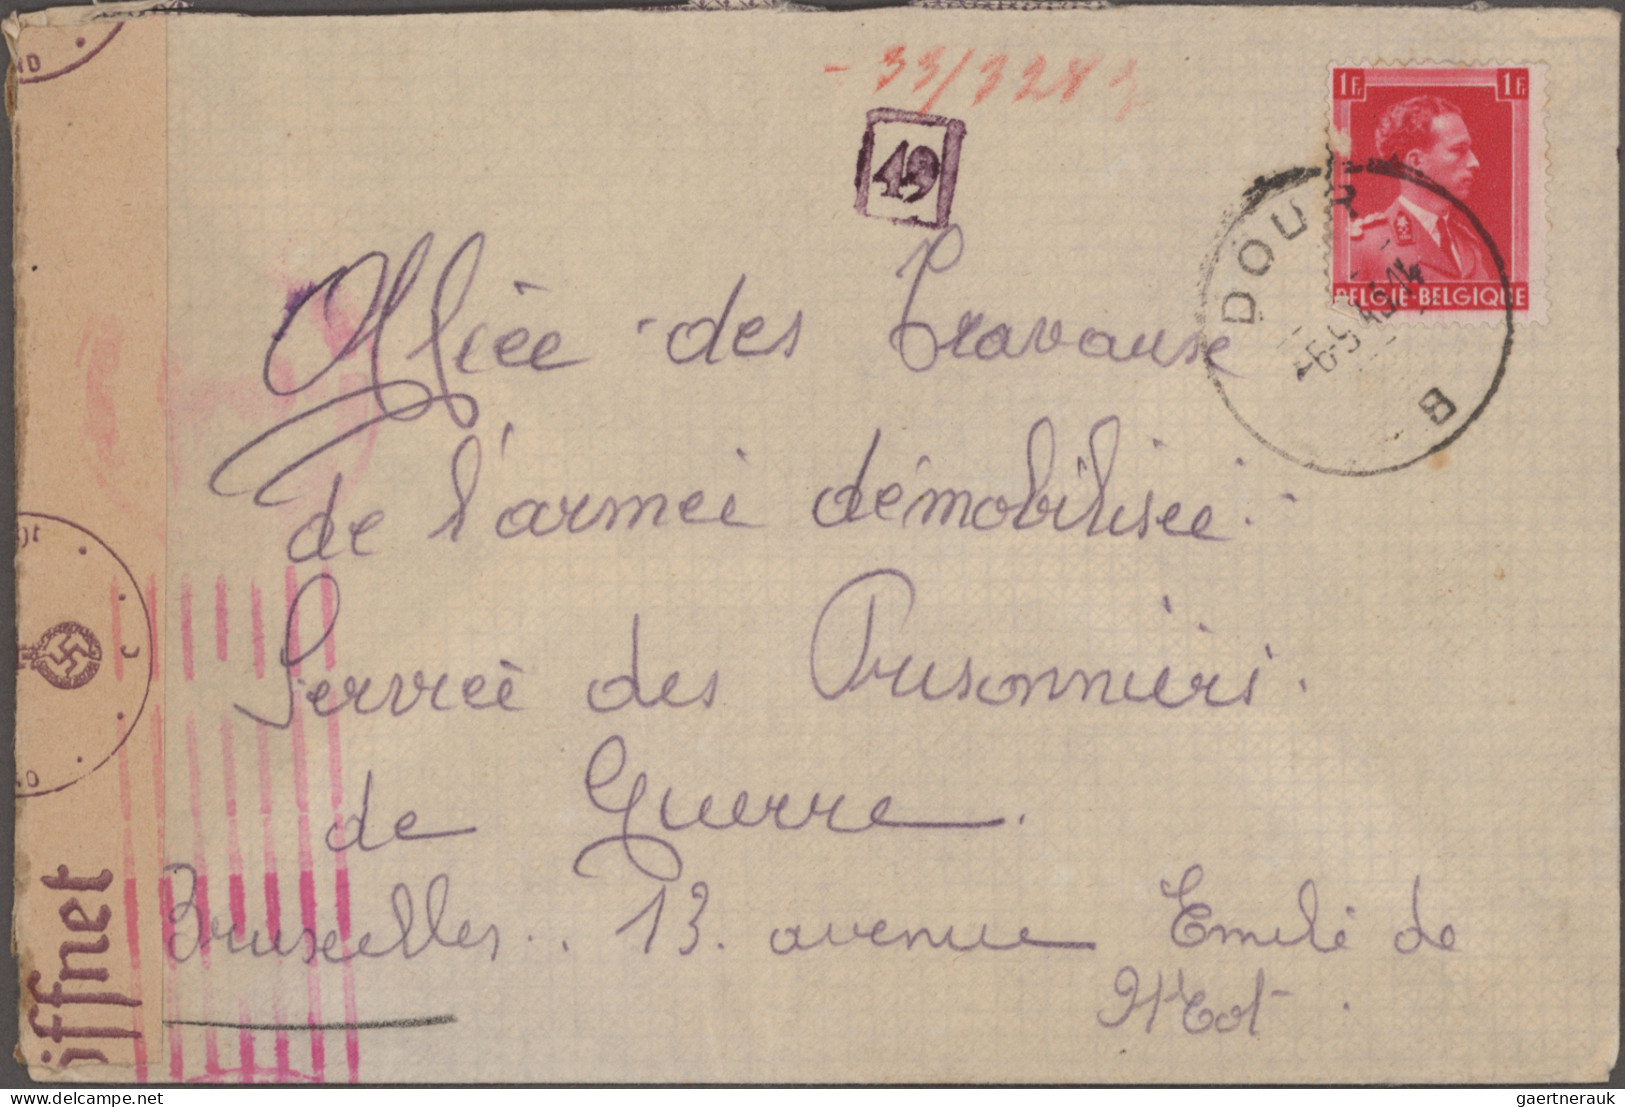 - 33/328
49
1Fr 1Fr
BELGIË-BELGIQUE
DOUR
-6-5 43.14
B
Office des Travause
de l'armeé démobilisée.
Service des Prisonniers.
de Guerre.
Bruxelles.. 13. avenue Emile de
Mot.
iffnet
gaertnerauk